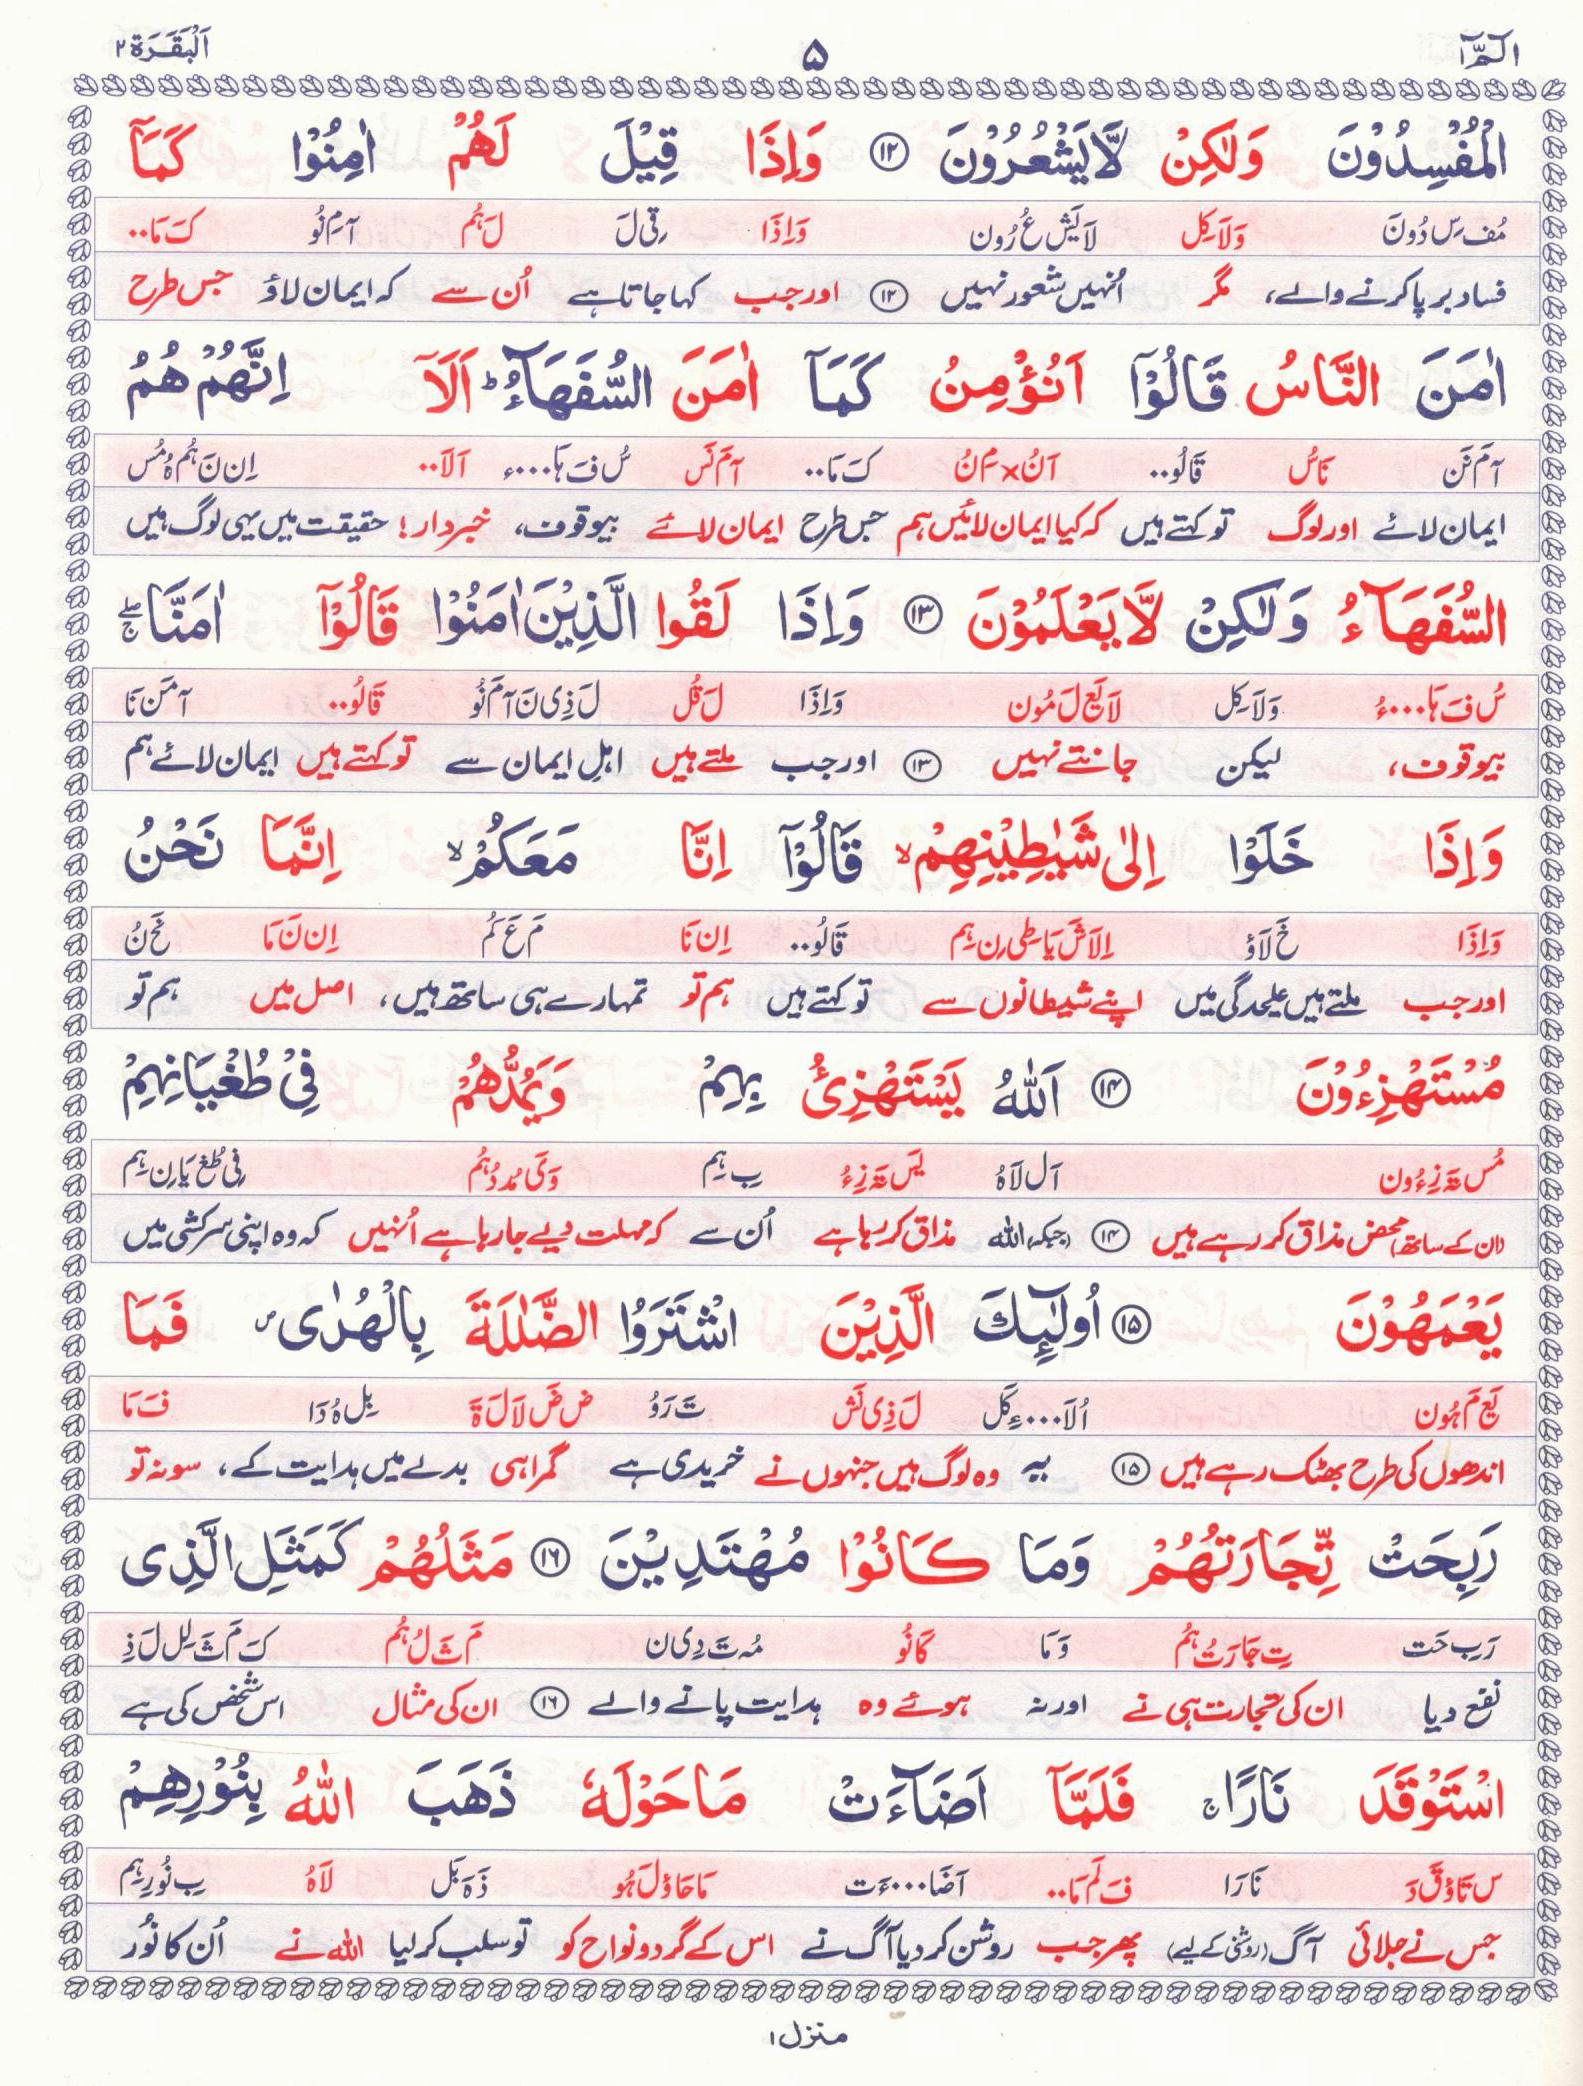 الٓمّٓ ۱ ۵ اَلْبَقَرَة ۲
الْمُفْسِدُوْنَ وَلٰكِنْ لَّا يَشْعُرُوْنَ ⑫ وَاِذَا قِيْلَ لَهُمْ اٰمِنُوْا كَمَآ
مُف سِ دُونَ وَلَاكِل لَا يَش عُ رُون وَاِذَا قِی لَ لَ ہُم آ مِ نُو كَ مَا۰۰
فساد برپا کرنے والے، مگر اُنہیں شعور نہیں ⑫ اور جب کہا جاتا ہے اُن سے کہ ایمان لاؤ جس طرح
اٰمَنَ النَّاسُ قَالُوْٓا اَنُؤْمِنُ كَمَآ اٰمَنَ السُّفَهَآءُ ؕ اَلَآ اِنَّهُمْ هُمُ
آ مَ نَن نَاسُ قَالُو۰۰ اَنُ×مِ نُ كَ مَا۰۰ آ مَ نَس سُ فَ ہَا۰۰۰۰ء اَلَا۰۰ اِن نَ ہُم ہُ مُس
ایمان لائے اور لوگ تو کہتے ہیں کہ کیا ایمان لائیں ہم جس طرح ایمان لائے بیوقوف، خبردار! حقیقت میں یہی لوگ ہیں
السُّفَهَآءُ وَلٰكِنْ لَّا يَعْلَمُوْنَ ⑬ وَاِذَا لَقُوا الَّذِيْنَ اٰمَنُوْا قَالُوْٓا اٰمَنَّا ۚۖ
سُ فَ ہَا۰۰۰۰ءُ وَلَاكِل لَا يَع لَ مُون وَاِذَا لَ قُل لَ ذِی نَ آ مَ نُو قَالُو۰۰ آ مَن نَا
بیوقوف، لیکن جانتے نہیں ⑬ اور جب ملتے ہیں اہلِ ایمان سے تو کہتے ہیں ایمان لائے ہم
وَاِذَا خَلَوْا اِلٰى شَيٰطِيْنِهِمْ ۙ قَالُوْٓا اِنَّا مَعَكُمْ ۙ اِنَّمَا نَحْنُ
وَاِذَا خَ لَاوْ اِلَا شَ يَا طِی نِ ہِم قَالُو۰۰ اِن نَا مَ عَ كُم اِن نَ مَا نَح نُ
اور جب ملتے ہیں علیحدگی میں اپنے شیطانوں سے تو کہتے ہیں ہم تو تمہارے ہی ساتھ ہیں، اصل میں ہم تو
مُسْتَهْزِءُوْنَ ⑭ اَللّٰهُ يَسْتَهْزِئُ بِهِمْ وَيَمُدُّهُمْ فِيْ طُغْيَانِهِمْ
مُس تَہ زِءُون اَل لَاہُ يَس تَہ زِءُ بِ ہِم وَ يَ مُد دُ ہُم فِی طُغ يَا نِ ہِم
(ان کے ساتھ) محض مذاق کر رہے ہیں ⑭ (جبکہ) اللہ مذاق کر رہا ہے اُن سے کہ مہلت دیے جا رہا ہے اُنہیں کہ وہ اپنی سرکشی میں
يَعْمَهُوْنَ ⑮ اُولٰٓئِكَ الَّذِيْنَ اشْتَرَوُا الضَّلٰلَةَ بِالْهُدٰى ۪ فَمَا
يَع مَ ہُون اُلَا۰۰۰۰ءِ كَل لَ ذِی نَش تَ رَوُ ض ضَ لَا لَ ةَ بِل ہُ دَا فَ مَا
اندھوں کی طرح بھٹک رہے ہیں ⑮ یہ وہ لوگ ہیں جنہوں نے خریدی ہے گمراہی بدلے میں ہدایت کے، سو نہ تو
رَبِحَتْ تِّجَارَتُهُمْ وَمَا كَانُوْا مُهْتَدِيْنَ ⑯ مَثَلُهُمْ كَمَثَلِ الَّذِى
رَ بِ حَت تِ جَا رَ تُ ہُم وَ مَا كَا نُو مُہ تَ دِی ن مَ ثَ لُ ہُم كَ مَ ثَ لِل لَ ذِ
نفع دیا ان کی تجارت ہی نے اور نہ ہوئے وہ ہدایت پانے والے ⑯ ان کی مثال اس شخص کی ہے
اسْتَوْقَدَ نَارًا ۚ فَلَمَّآ اَضَآءَتْ مَا حَوْلَهٗ ذَهَبَ اللّٰهُ بِنُوْرِهِمْ
س تَاوْ قَ دَ نَا رَا فَ لَم مَا۰۰ اَضَا۰۰۰۰ءَت مَا حَاوْ لَ ہُو ذَ ہَ بَل لَاہُ بِ نُو رِ ہِم
جس نے جلائی آگ (روشنی کے لیے) پھر جب روشن کر دیا آگ نے اس کے گرد و نواح کو تو سلب کر لیا اللہ نے اُن کا نُور
منزل ۱